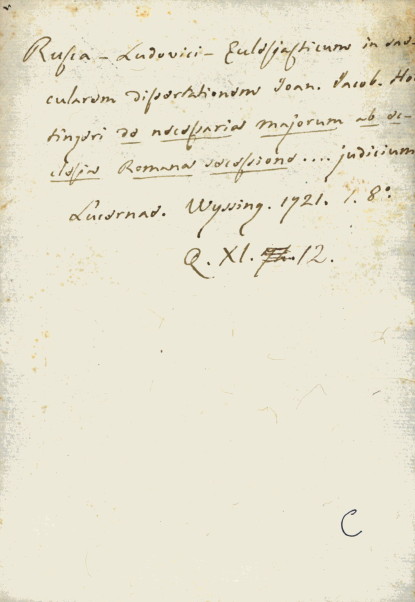 Rusca - Ludovici - Eclesiasticum in sae-
cularem dissertationem Joan. Jacob. Ho
tingeri de necessaria majorum ab ec-
clesia Romana secessione .... judicium
Lucernae. Wyssing. 1721. 1. 8°
Q. XI. 12.
C